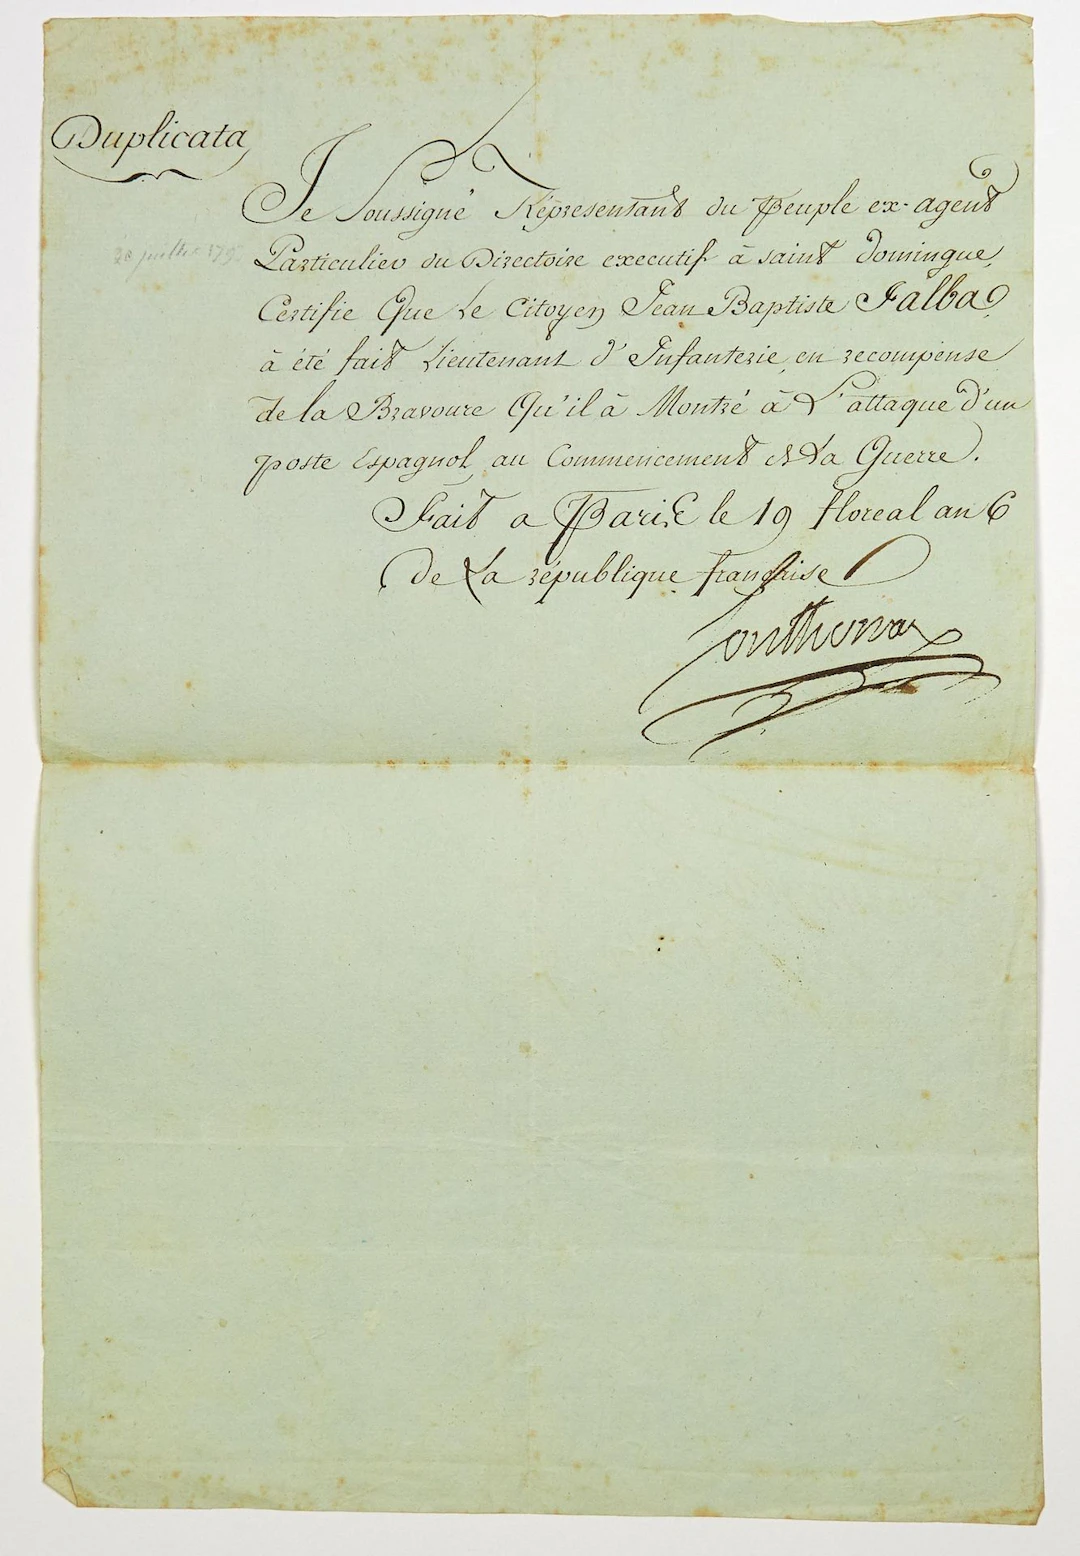 Duplicata
Je Soussigné Réprésentant du Peuple ex-agent
Particulier du Directoire executif à saint domingue,
Certifie Que Le Citoyen Jean Baptiste
à été fait Lieutenant d'Infanterie, en recompense
de la Bravoure Qu'il à Montré à L'attaque d'un
poste Espagnol, au Commencement de La Guerre.
Fait a Paris le 19 floreal an 6
de La république française
Sonthonax